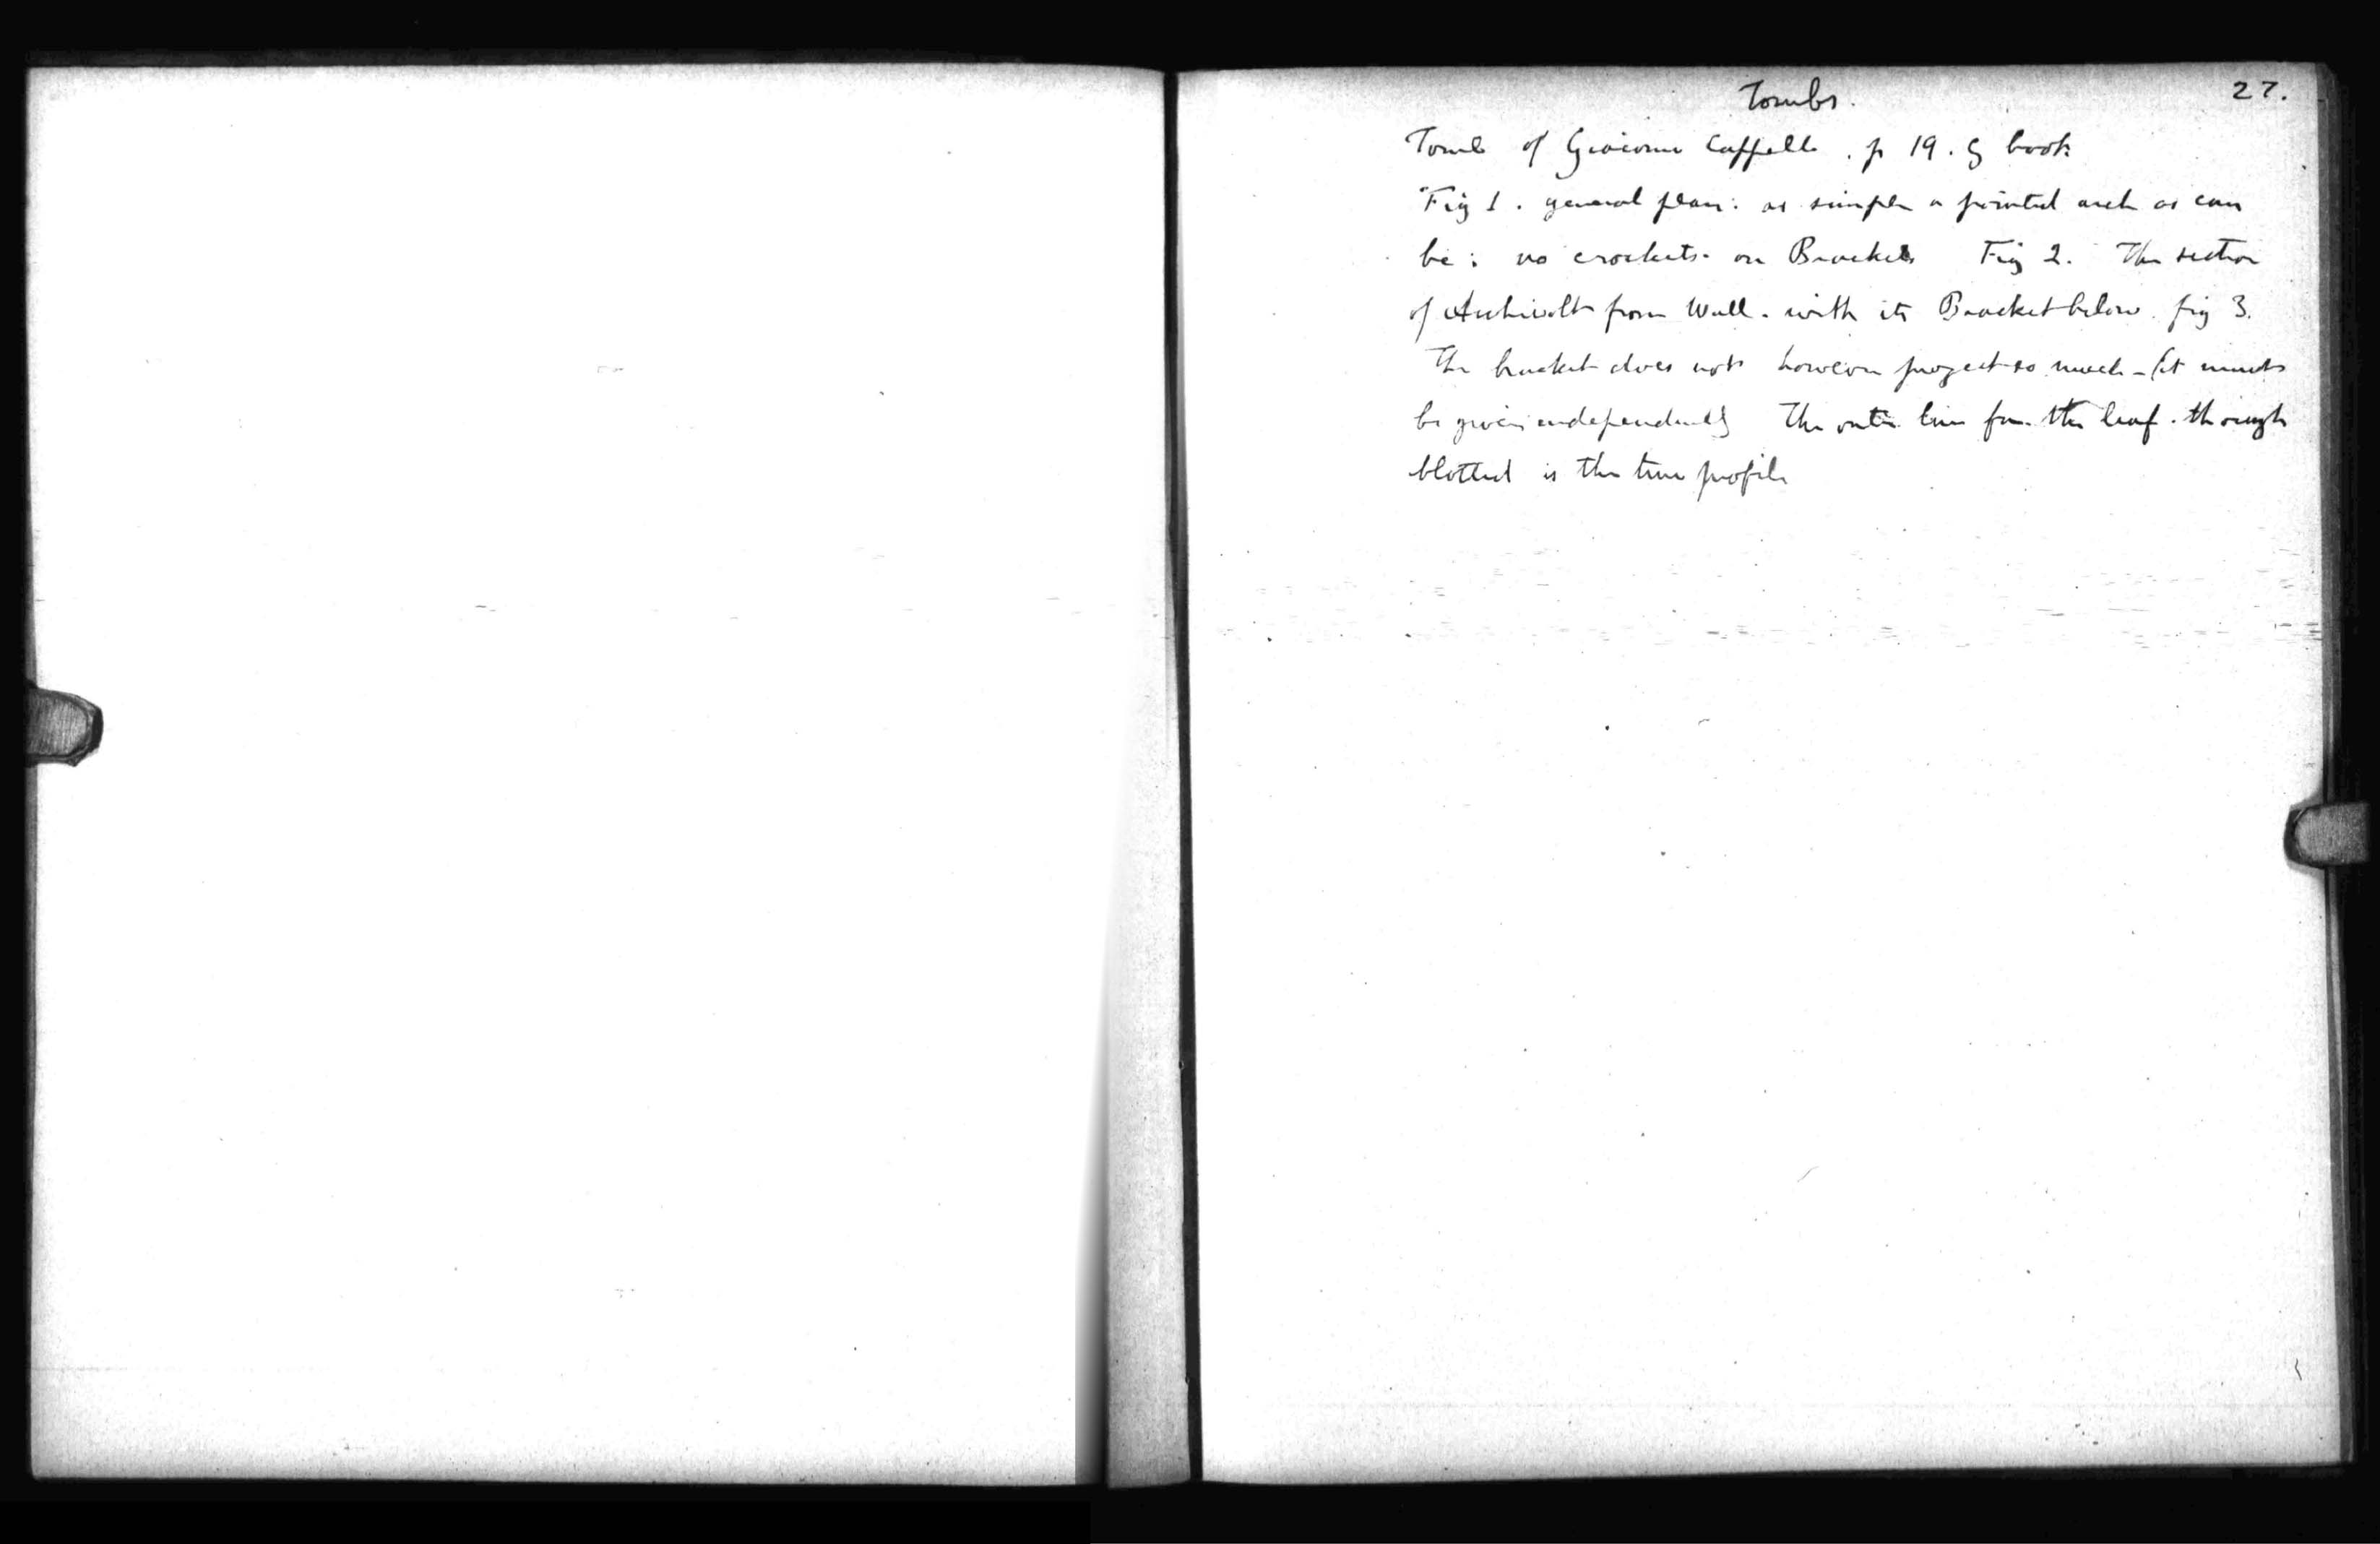 Tombs.
27.
Tomb of Giacomo Cappello. p 19. G book
Fig 1. general plan: as simple a pointed arch as can
be: no crockets. on Brackets Fig 2. The section
of Archivolt from Wall. with its Bracket below. fig 3.
The bracket does not however project so much - (it must
be given independently The outer line for the leaf. though
blotted is the true profile